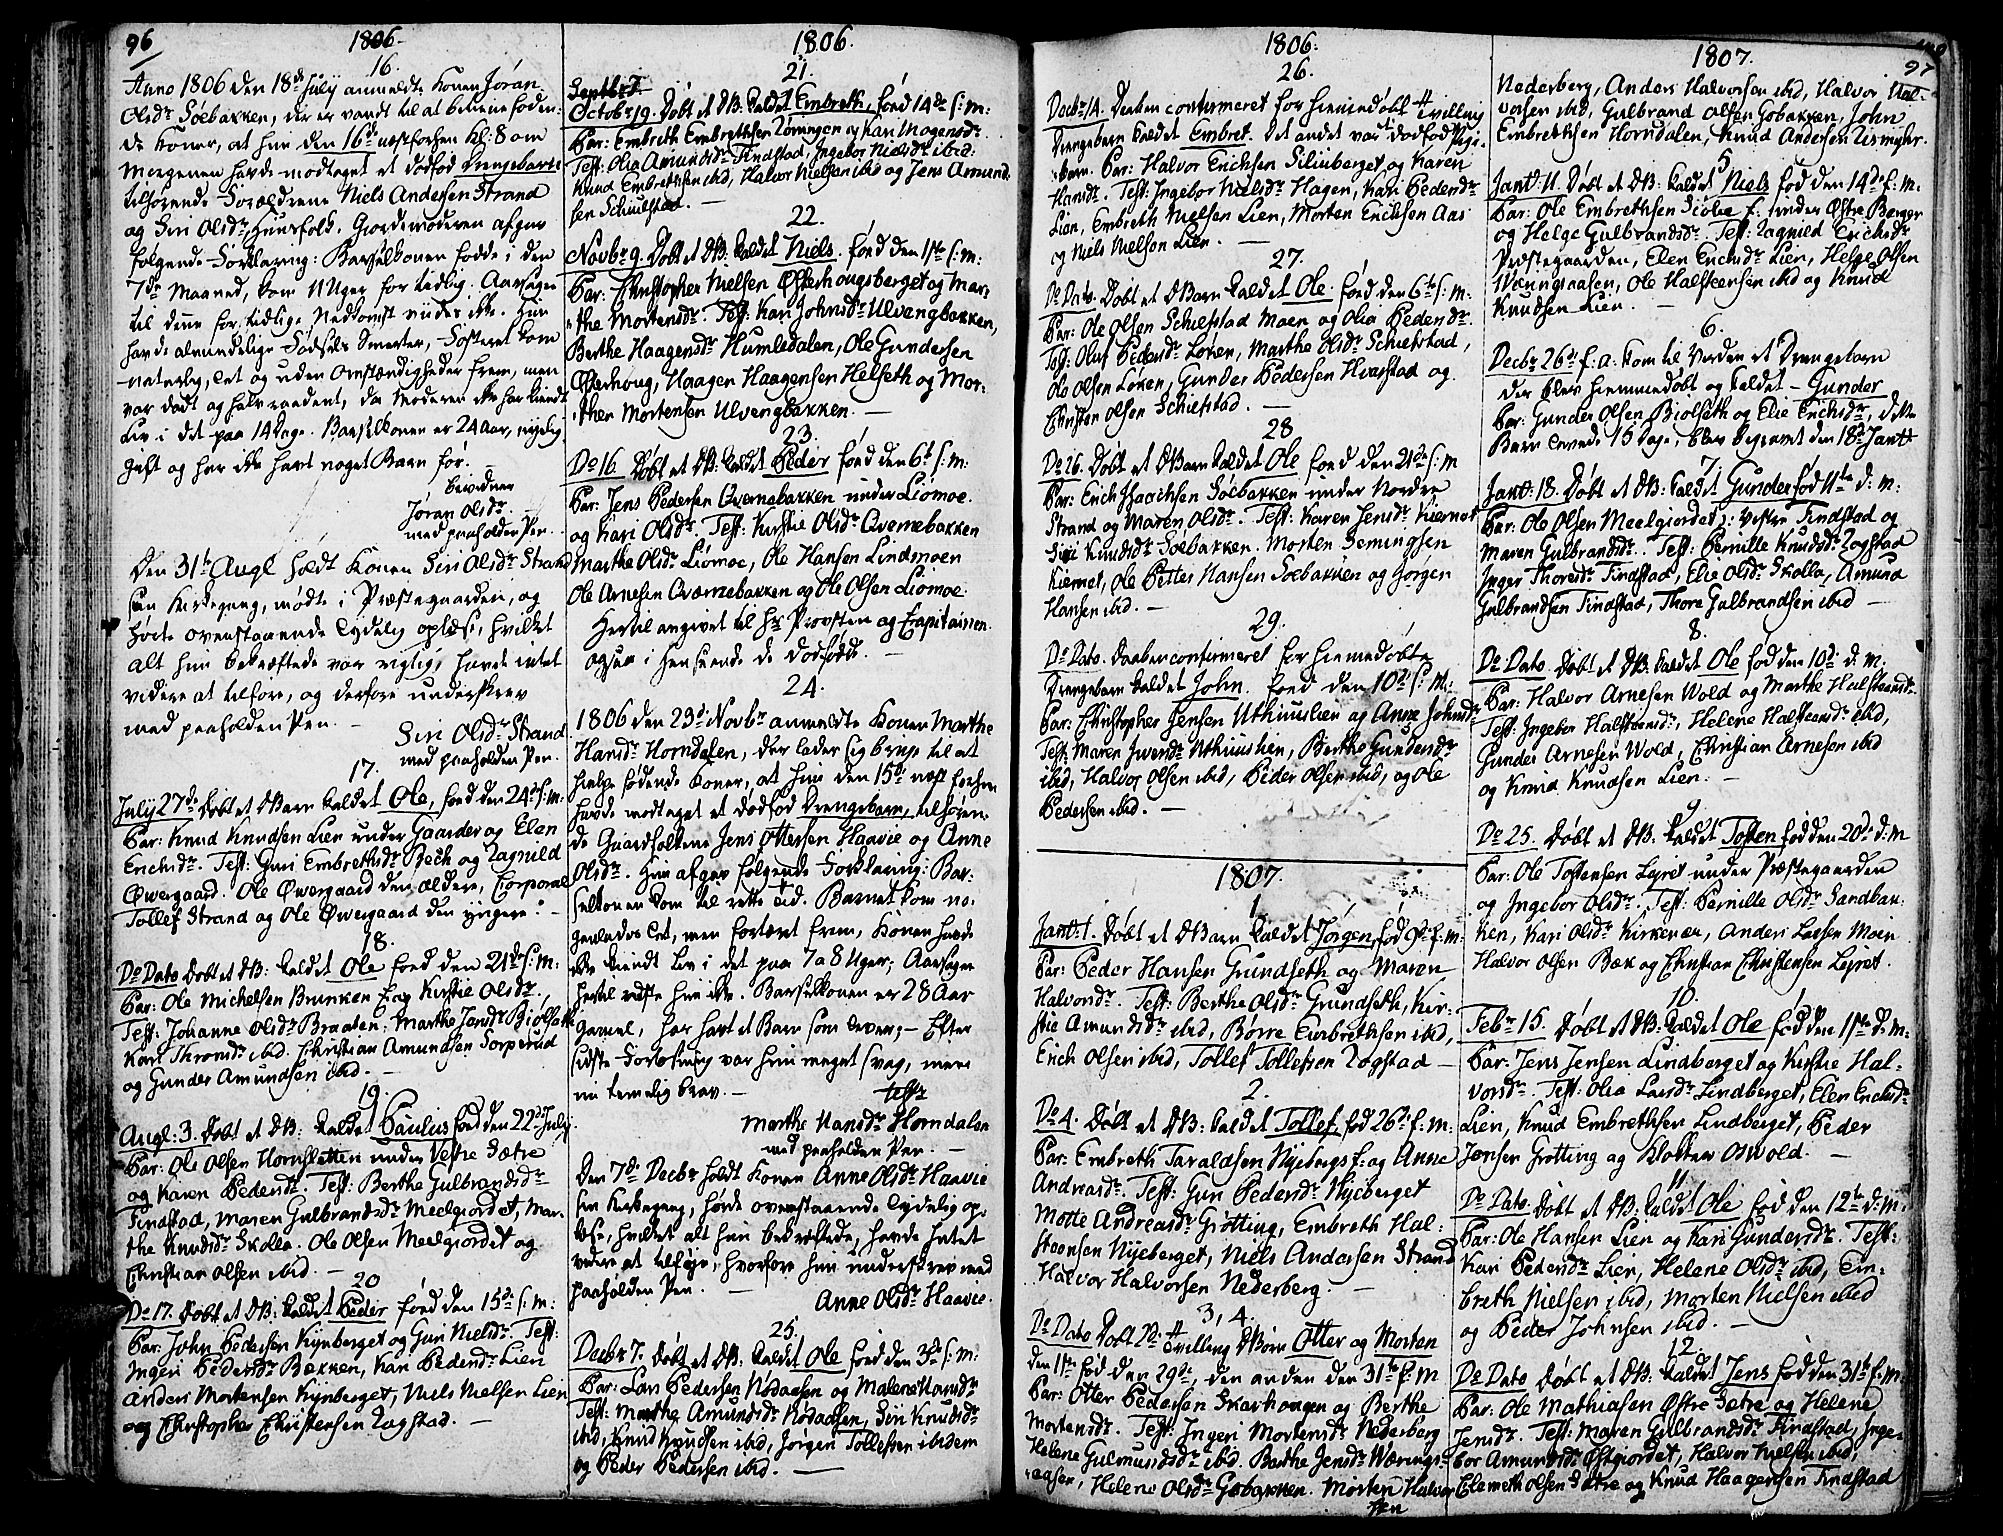 96
1806.
16.
Anno 1806 den 18de July anmeldte Konen Jøran
Olsdr Soebakken, der er vandt til at betiene foden-
de Koner, at hun den 16de næstforhen Kl: 8 om
Morgenen havde modtaget et dødfød Drengebarn
tilhørende Forældrene Niels Andersen Strand
og Siri Olsdr Huusfolk. Giordemoderen afgav
følgende Forklaring: Barselkonen fødde i den
7de Maaned, kom 11 Uger for tidlig. Aarsagen
til denne for tidlige Nedkomst vides ikke. Hun
havde almindelige Fødsels Smerter, Fosteret kom
naturlig, let og uden Omstændigheder frem, men
var dødt og halvraadent, da Moderen ikke har kiendt
Liv i det paa 14 Dage. Barselkonen er 24 Aar, nylig
gift og har ikke havt noget Barn før.
bevidner
Jøran Olsdr.
med paaholden Pen.
Den 31te Augt holdt Konen Siri Olsdr Strand
sin Kirkegang, mødte i Præstegaarden, og
hørte ovenstaaende tydelig oplæse, hvilket
alt hun bekræftede var rigtigt, havde intet
videre at tilføre, og derfore underskrev
med paaholden Pen. —
Siri Olsdr Strand
med paaholden Pen.
17.
July 27de Døbt et DBarn kaldet Ole, fød den 24de s: m:
Par: Knud Knudsen Lien under Gaarder og Elen
Erichsdr. Test: Guri Embrethsdr Bech og Ragnild
Øwergaard. Ole Øwergaard den ældere, Corporal
Tollef Strand og Ole Øwergaard den yngere. —
18.
Do Dato Døbt et DB: kaldet Ole fød den 21de s: m:
Par: Ole Michelsen Brunken og Kirstie Olsdr.
Test: Johanne Olsdr Braaten, Marthe Jansdr Biølseth
Kari Thronsdr ibid. Christian Amundsen Torperud
og Gunder Amundsen ibid. —
19.
Augt: 3. Døbt et DB: kaldet Paulus fød den 22de July
Par: Ole Olsen Hornsletten under Vestre Sætre
og Karen Pedersdr. Test: Berthe Gulbrandsdr
Findstad, Maren Gulbrandsdr Meelgiordet, Mar-
the Knudsdr Skolla. Ole Olsen Meelgiordet og
Christian Olsen ibid. —
20
Do 17. Døbt et DB: kaldet Peder fød den 15de s: m:
Par: John Pedersen Kynberget og Guri Nielsdr. Test:
Ingeri Pedersdr Bækken, Kari Pedersdr Lien
Anders Mortensen Kynberget, Niels Nielsen Lien
og Christopher Christensen Zagstad. —
1806.
21.
Octobr 19. Døbt et DB: kaldet Embreth, fød 14de s: m:
Par: Embreth Embrethsen Løningen og Kari Mogensdr
Test: Olia Amundsdr Findstad, Ingebor Nielsdr ibid:
Knud Embrethsen ibid, Halvor Nielsen ibid og Jens Amund-
sen Schiulstad. —
22.
Novbr 9. Døbt et DB: kaldet Niels. fød den 1ste s: m:
Par: Christopher Nielsen Østerhougsberget og Mar-
the Mortensdr. Test: Kari Johnsdr Ulvengbakken,
Berthe Haagensdr Humledalen, Ole Gundersen
Østerhoug, Haagen Haagensen Helseth og Mor-
then Mortensen Ulvengbakken. —
23.
Do 16. Døbt et DB: kaldet Peder fød den 6te s: m:
Par: Jens Pedersen Qvernebakken under Liømoe.
og Kari Olsdr. Test: Kirstie Olsdr Qvernebakken
Marthe Olsdr Liømoe, Ole Hansen Lindmoen
Ole Arnesen Qværnebakken og Ole Olsen Liømoe.
Hertil angivet til Hr Provsten og Capitainen
ogsaa i henseende de dødfødde. —
24.
1806 den 23de Novbr anmeldte Konen Marthe
Hansdr Horndalen, der lader sig bruge til at
hielpe fødende Koner, at hun den 15de næst forhen
havde modtaget et dødfød Drengebarn, tilhøren-
de Gaardfolkene Jens Ottersen Haavie og Anne
Olsdr. Hun afgav følgende Forklaring: Bar-
selkonen kom til rette Tid. Barnet kom no-
genledes let, men fortæret frem, Konen havde
ikke kiendt Liv i det paa 7 a 8 Uger; Aarsagen
hertil vidste hun ikke. Barselkonen er 28 Aar
gammel, har havt et Barn som lever. — Efter
sidste Forløsning var hun meget svag, men
nu temmelig brav. —
test
Marthe Hansdr Horndalen
med paaholden Pen. —
Den 7de Decbr holdt Konen Anne Olsdr Haavie
sin Kirkegang, hørde ovenstaaende tydelig op-
læse, hvilket alt hun bekræftede, havde intet
videre at tilføye, hvorfore hun underskrev med
paaholden Pen. —
Anne Olsdr Haavie.
25.
Decbr 7. Døbt et DB: kaldet Ole fød den 3de s: m:
Par: Lars Pedersen Nødaasen og Malene Hansdr
Test: Marthe Amundsdr Nødaasen, Siri Knudsdr
ibid, Knud Knudsen ibid, Jørgen Tollefsen ibidem
og Peder Pedersen ibid. —
1806.
26.
Decbr 14. Daaben confirmeret for hiemedøbt tvilling
Drengebarn kaldet Embret. Det andet var dødfød Pige-
barn. Par: Halvor Erichsen Siliuberget og Karen
Hansdr. Test: Ingebor Nielsdr Hagen, Kari Pedersdr
Lien, Embreth Nielsen Lien, Morten Erichsen Aas
og Niels Nielsen Lien. —
27.
Do Dato. Døbt et DBarn kaldet Ole. fød den 6te s: m:
Par: Ole Olsen Schiefstad Moen og Olia Pedersdr.
Test: Oluf Pedersdr Løken, Marthe Olsdr Schiefstad,
Ole Olsen Løken, Gunder Pedersen Hvarstad og
Christen Olsen Schiefstad. —
28
Do 26. Døbt et DBarn kaldet Ole fød den 21de s: m
Par: Erich Isachsen Soebakken under Nordre
Strand og Maren Olsdr. Test: Karen Jensdr Kiernet
Siri Knudsdr Soebakken. Morten Semingsen
Kiernet, Ole Petter Hansen Soebakken og Jorgen
Hansen ibid. —
29.
Do Dato. Daaben confirmeret for hiemedøbte
Drengebarn kaldet John. fød den 10de s: m:
Par: Christopher Jensen Uthuuslien og Anne Johnsdr
Test: Maren Iversdr Uthuuslien, Berthe Gundersdr
ibid, Halvor Olsen ibid, Peder Olsen ibid, og Ole
Pedersen ibid. —
1807.
1.
Jant: 1. Døbt et DBarn kaldet Jørgen, fød 9de f: m:
Par: Peder Hansen Grundseth og Maren
Halvorsdr. Test: Berthe Olsdr Grundseth, Kir-
stie Amundsdr ibid, Børre Embrethsen ibid,
Erich Olsen ibid, Tollef Tollefsen Zogstad —
2.
Do 4. Døbt et DB: kaldet Tollef, fød 26de f: m:
Par: Embreth Taraldsen Nyebergs f: og Anne
Andreasdr. Test: Guri Pedersdr Nyeberget
Motte Andreasdr Grøtting, Embreth Hal-
steensen Nyeberget, Niels Andersen Strand
Halvor Halvorsen Nederberg. —
3, 4.
Do Dato Døbt 2de tvilling DBørn Otter og Morten
den 1ste fød den 29de, den anden den 31te f: m
Par: Otter Pedersen Skarhougen og Berthe
Mortensdr. Test: Ingeri Mortensdr Nederberg
Helene Gulmundsdr ibid. Berthe Jensdr Wærings-
aasen, Helene Olsdr Gobakken. Morten Halvor-
sen
1807.
97
Nederberg, Anders Halvorsen ibid, Halvor Hal-
vorsen ibid, Gulbrand Olsen Gobakken, John
Embrethsen Horndalen, Knud Andersen Zismyhr.
5.
Jant: 11. Døbt et DB: kaldet Niels fød den 14de f: m.
Par: Ole Embrethsen Siølie f: under Østre Berger
og Helge Gulbrandsdr. Test: Ragnild Erichsdr
Præstegaarden, Elen Erichsdr Lien, Helge Olsen
Wæringsaasen, Ole Halsteensen ibid og Knud
Knudsen Lien. —
6.
Decbr 26de f: a. kom til Verden et Drengebarn
der blev hiemmedøbt og kaldet — Gunder
Par: Gunder Olsen Biolseth og Elie Erichsdr, dette
Barn levede 15 Dage, blev begravet den 18de Jant.
7.
Jant: 18. Døbt et DB: kaldet Gunder fød 11te d: m:
Par: Ole Olsen Meelgiordet : Vestre Findstad og
Maren Gulbrandsdr. Test: Pernille Knudsdr Zogstad
Inger Thoresdr Findstad, Elie Olsdr Skolla, Amund
Gulbrandsen Findstad, Thore Gulbrandsen ibid —
8.
Do Dato. Døbt et DB: kaldet Ole fød den 10de d: m.
Par: Halvor Arnesen Wold og Marthe Halsteensdr.
Test: Ingebor Halsteensdr, Helene Halsteensdr ibid,
Gunder Arnesen Wold, Christian Arnesen ibid
og Knud Knudsen Lien. —
9.
Do 25. Døbt et DB: kaldet Tosten fød den 20de d: m
Par: Ole Tostensen Lejret under Præstegaarden
og Ingebor Olsdr. Test: Pernille Olsdr Sandbak-
ken, Kari Olsdr Kirkenær, Anders Larsen Moen
Halvor Olsen Bæk og Christian Christensen Lejret.
10.
Febr 15. Døbt et DB: kaldet Ole fød den 1ste d: m:
Par: Jens Jensen Lindberget og Kirstie Hal-
vorsdr. Test: Olia Larsdr Lindberget, Elen Erichsdr
Lien, Knud Embrethsen Lindberget, Peder
Jensen Grøtting og Kloktter Oswold. —
11.
Do Dato. Døbt et DB: kaldet Ole fød den 12te d: m:
Par: Ole Hansen Lien og Kari Gundersdr. Test:
Kari Pedersdr Lien, Helene Olsdr ibid, Em-
breth Nielsen ibid, Morten Nielsen ibid
og Peder Johnsen ibid. —
12.
Do Dato Døbt et DB: kaldet Jens fød den 31te f: m
Par: Ole Mathiasen Østre Sætre og Helene
Jensdr. Test: Maren Gulbrandsdr Findstad, Inge-
bor Amundsdr Østgiordet, Halvor Nielsen ibid,
Elemeth Olsen Sætre og Knud Haagensen Findstad